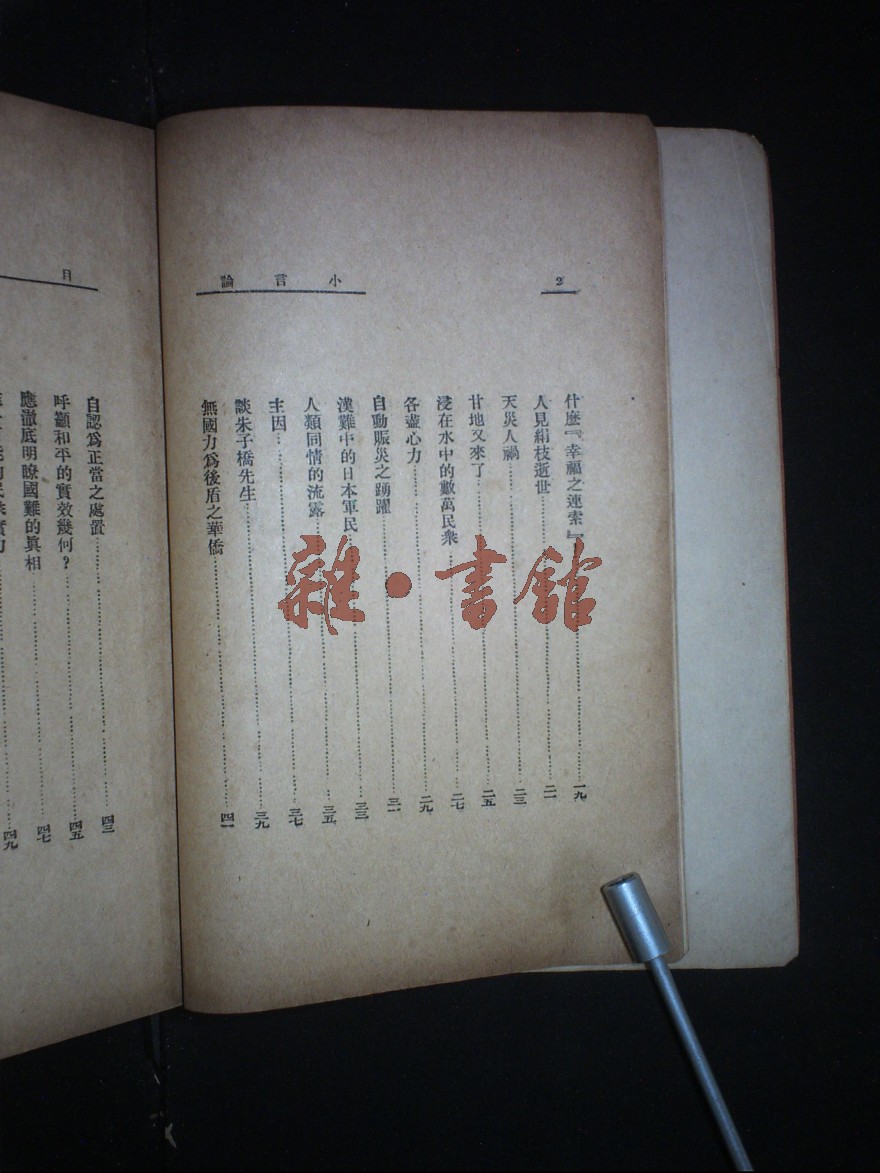 2
小言論
什麼『幸福之連索』 一九
人見絹枝逝世 二一
天災人禍 二三
甘地又來了 二五
浸在水中的數萬民衆 二七
各盡心力 二九
自動賑災之踴躍 三一
漢難中的日本軍民 三三
人類同情的流露 三五
主因 三七
談朱子橋先生 三九
無國力爲後盾之華僑 四一
目
自認爲正當之處置 四三
呼籲和平的實效幾何？ 四五
應澈底明瞭國難的眞相 四七
四九
雜·書館